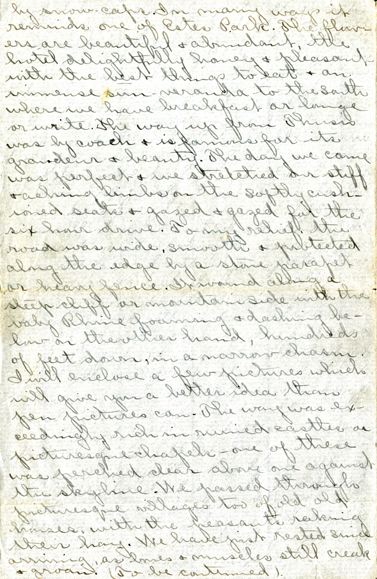 by snow caps. In many ways it
reminds one of Estes Park. The flow-
ers are beautiful & abundant, the
hotel delightfully homey & pleasant
with the best things to eat & an
immense sun veranda to the south
where we have breakfast or lounge
or write. The way up from Thusis
was by coach & is famous for its
grandeur & beauty. The day we came
was perfect & we stretched our stiff
& aching limbs on the softly cush-
ioned seats & gazed & gazed for the
six hour drive. To my relief the
road was wide, smooth & protected
along the edge by a stone parapet
or heavy fence. It wound along a
steep cliff or mountain side with the
baby Rhine foaming & dashing be-
low on the other hand, hundreds
of feet down, in a narrow chasm.
I will enclose a few pictures which
will give you a better idea than
pen pictures can. The way was ex-
ceedingly rich in ruined castles or
picturesque chapels - one of these
was perched clear above one against
the skyline. We passed through
picturesque villages too of old old
houses, with the peasants raking
their hay. We have just rested since
arriving, as bones & muscles still creak
& groan. (To be continued).